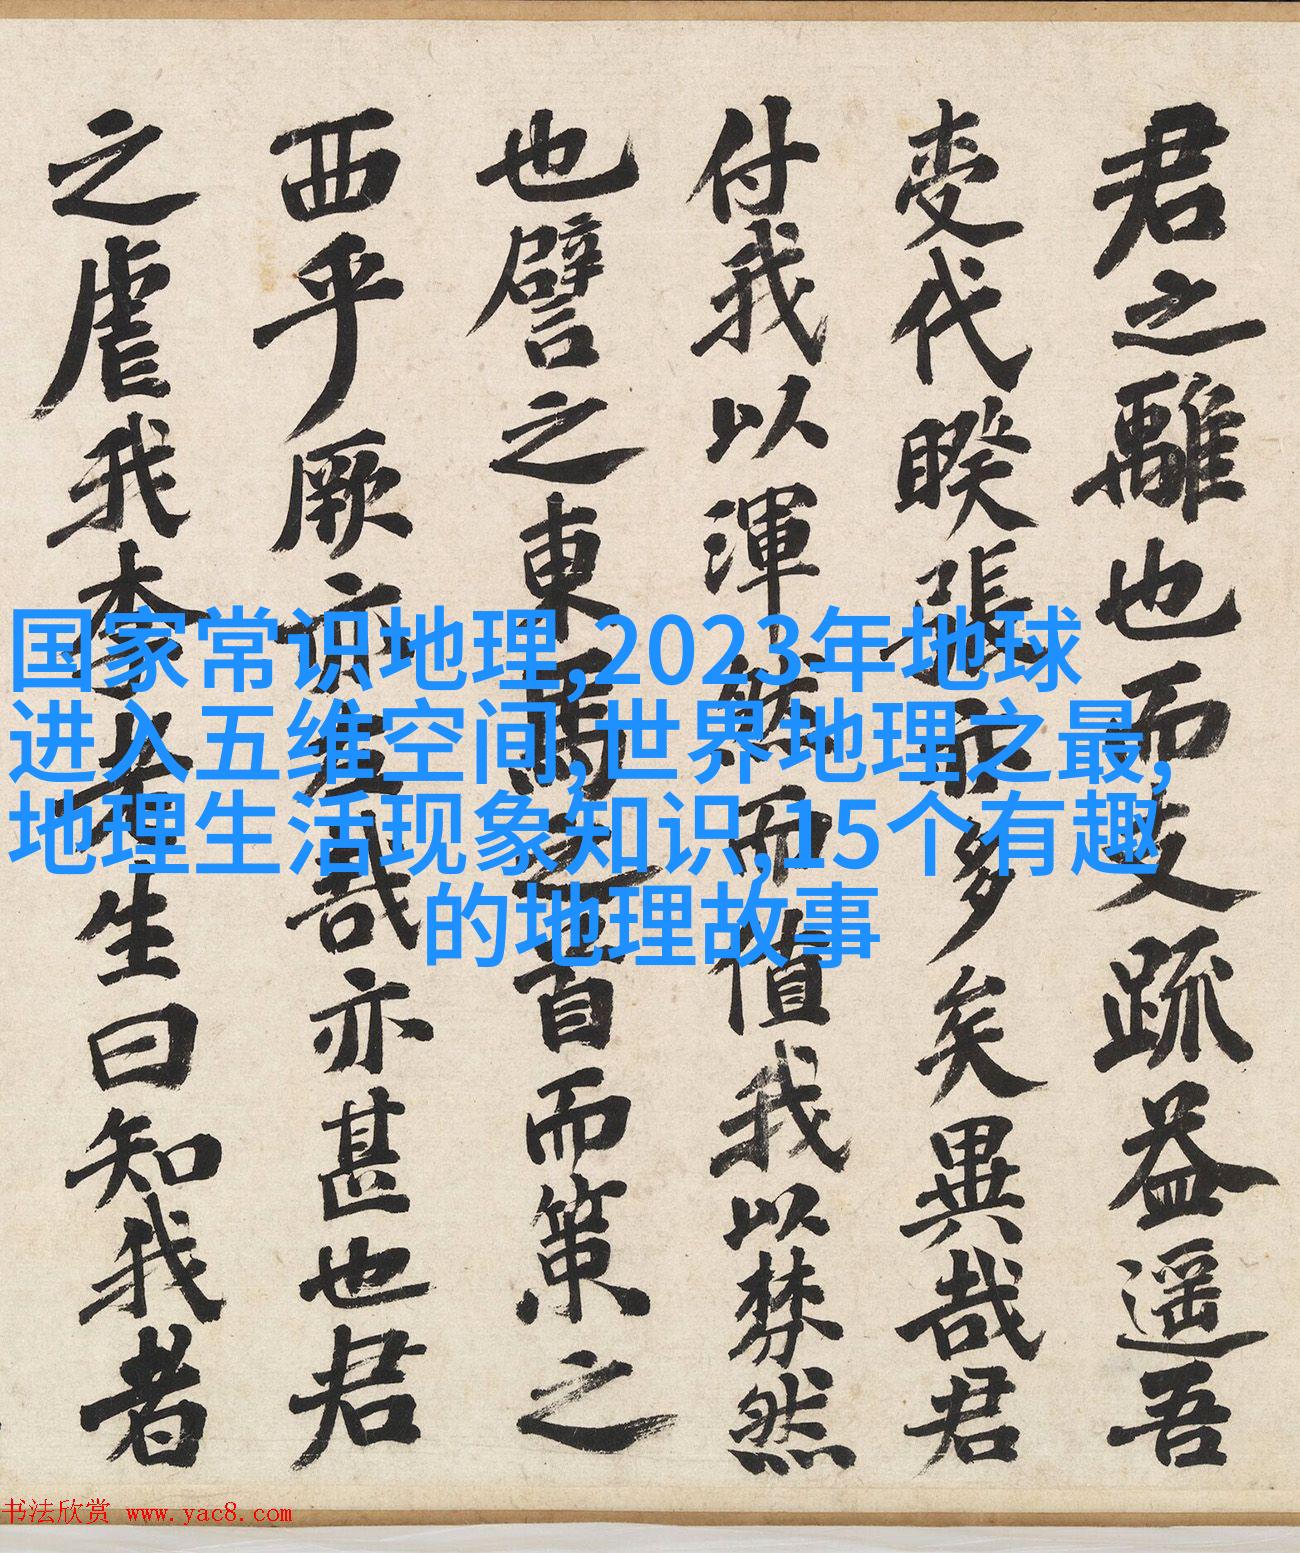 君之離也而支疏益遥吾
变代睽張取多矣異哉君
付我以渾然而值我以棼然
也譬之東馬之首而策之
西乎厥亦左哉亦甚也君
之虐我李先生曰知我者
国家常识地理,2023年地球
进入五维空间,世界地理之最,
地理生活现象知识,15个有趣
的地理故事
书法欣赏 www.yac8.com